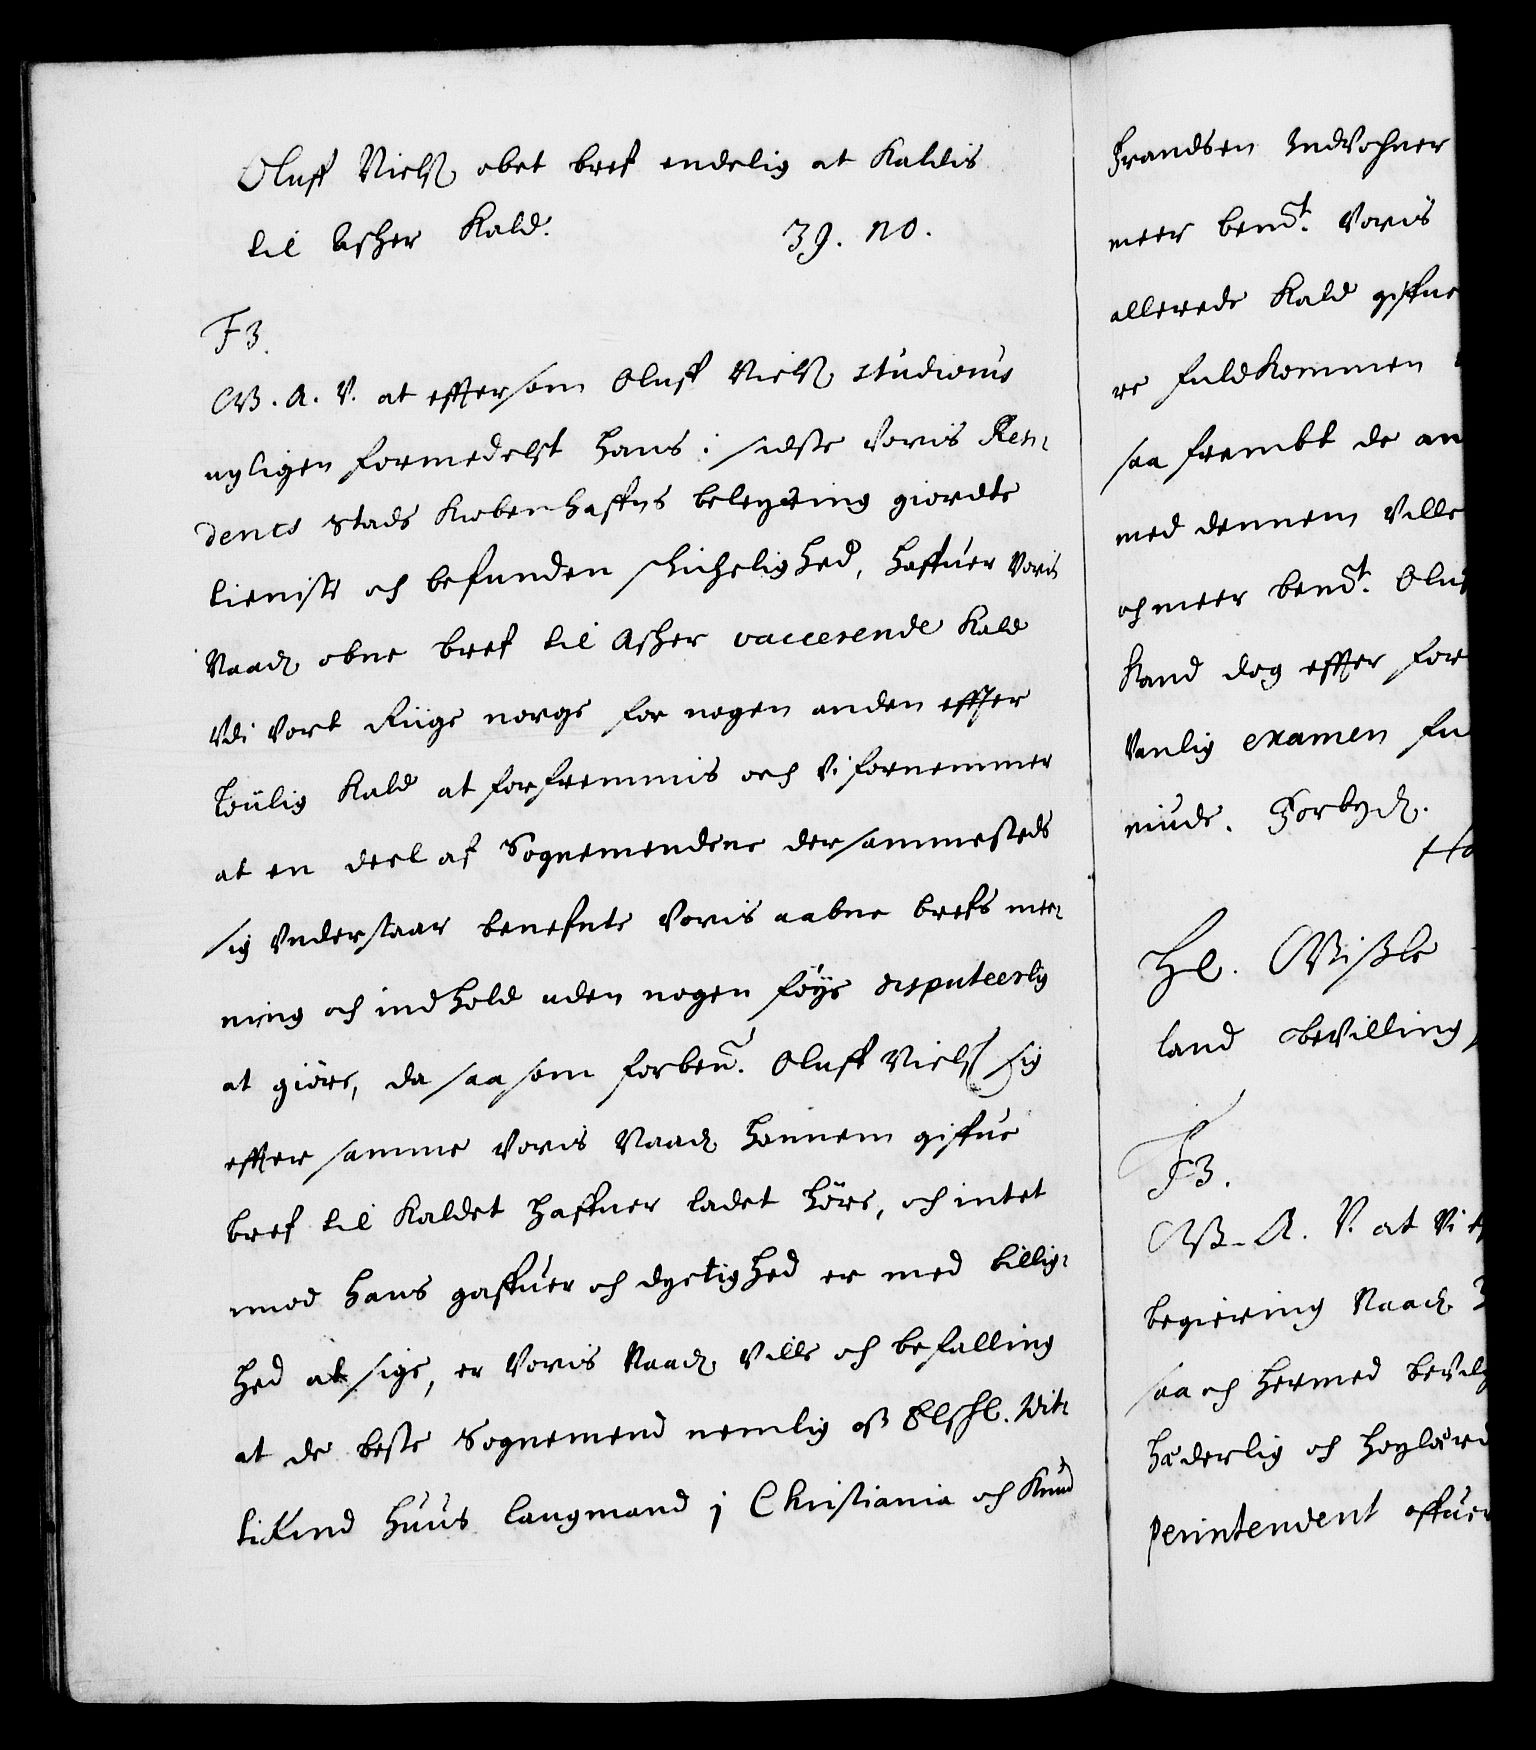 Oluff Nielß obet bref endelig at Kaldis
til Asker Kald. 39. no.
F3.
G. A. V. at effter som Oluff Nielß studiosus
nyligen formedelst hans i sidste Voris Resi-
dents Stads Kiøbenhaffns beleyring giordte
tieniste och befunden skichelighed, haffuer Voris
Naad obne bref til Asker vaccerende Kald
Udi Vort Riige norge for nogen anden effter
loulig Kald at forfremmis och Vi fornemmer
at en deel af Sognemendene dersammesteds
sig Vnderstaar benefnte Voris aabne brefs mee-
ning och indhold uden nogen føye disputeerlig
at giøre, da saa som forben. Oluff Nielß sig
effter samme Voris Naad hannem giffne
bref til Kaldet haffuer ladet høre, och intet
imod hans gaffuer och dyctighed er med billig-
hed at sige, er Voris Naad Ville och befalling
at de beste Sognemend nemlig oß Elskl. Wit-
tikind Huus laugmand j Christiania och Knud
Frandsen Indvohner
meer bend. Voris
allerede Kald giffne
re fuldkommen
saa frembt de an
med dennem Ville
och meer bend. Oluf
Kand dog effter for
Vanlig examen fu
niude. Forbyd.
Ha
Hl.
land bevilling
F3.
G. A. V. at Vi ef
begiering Naad
saa och hermed bevilg
hæderlig och høylærd
perintendent offuer